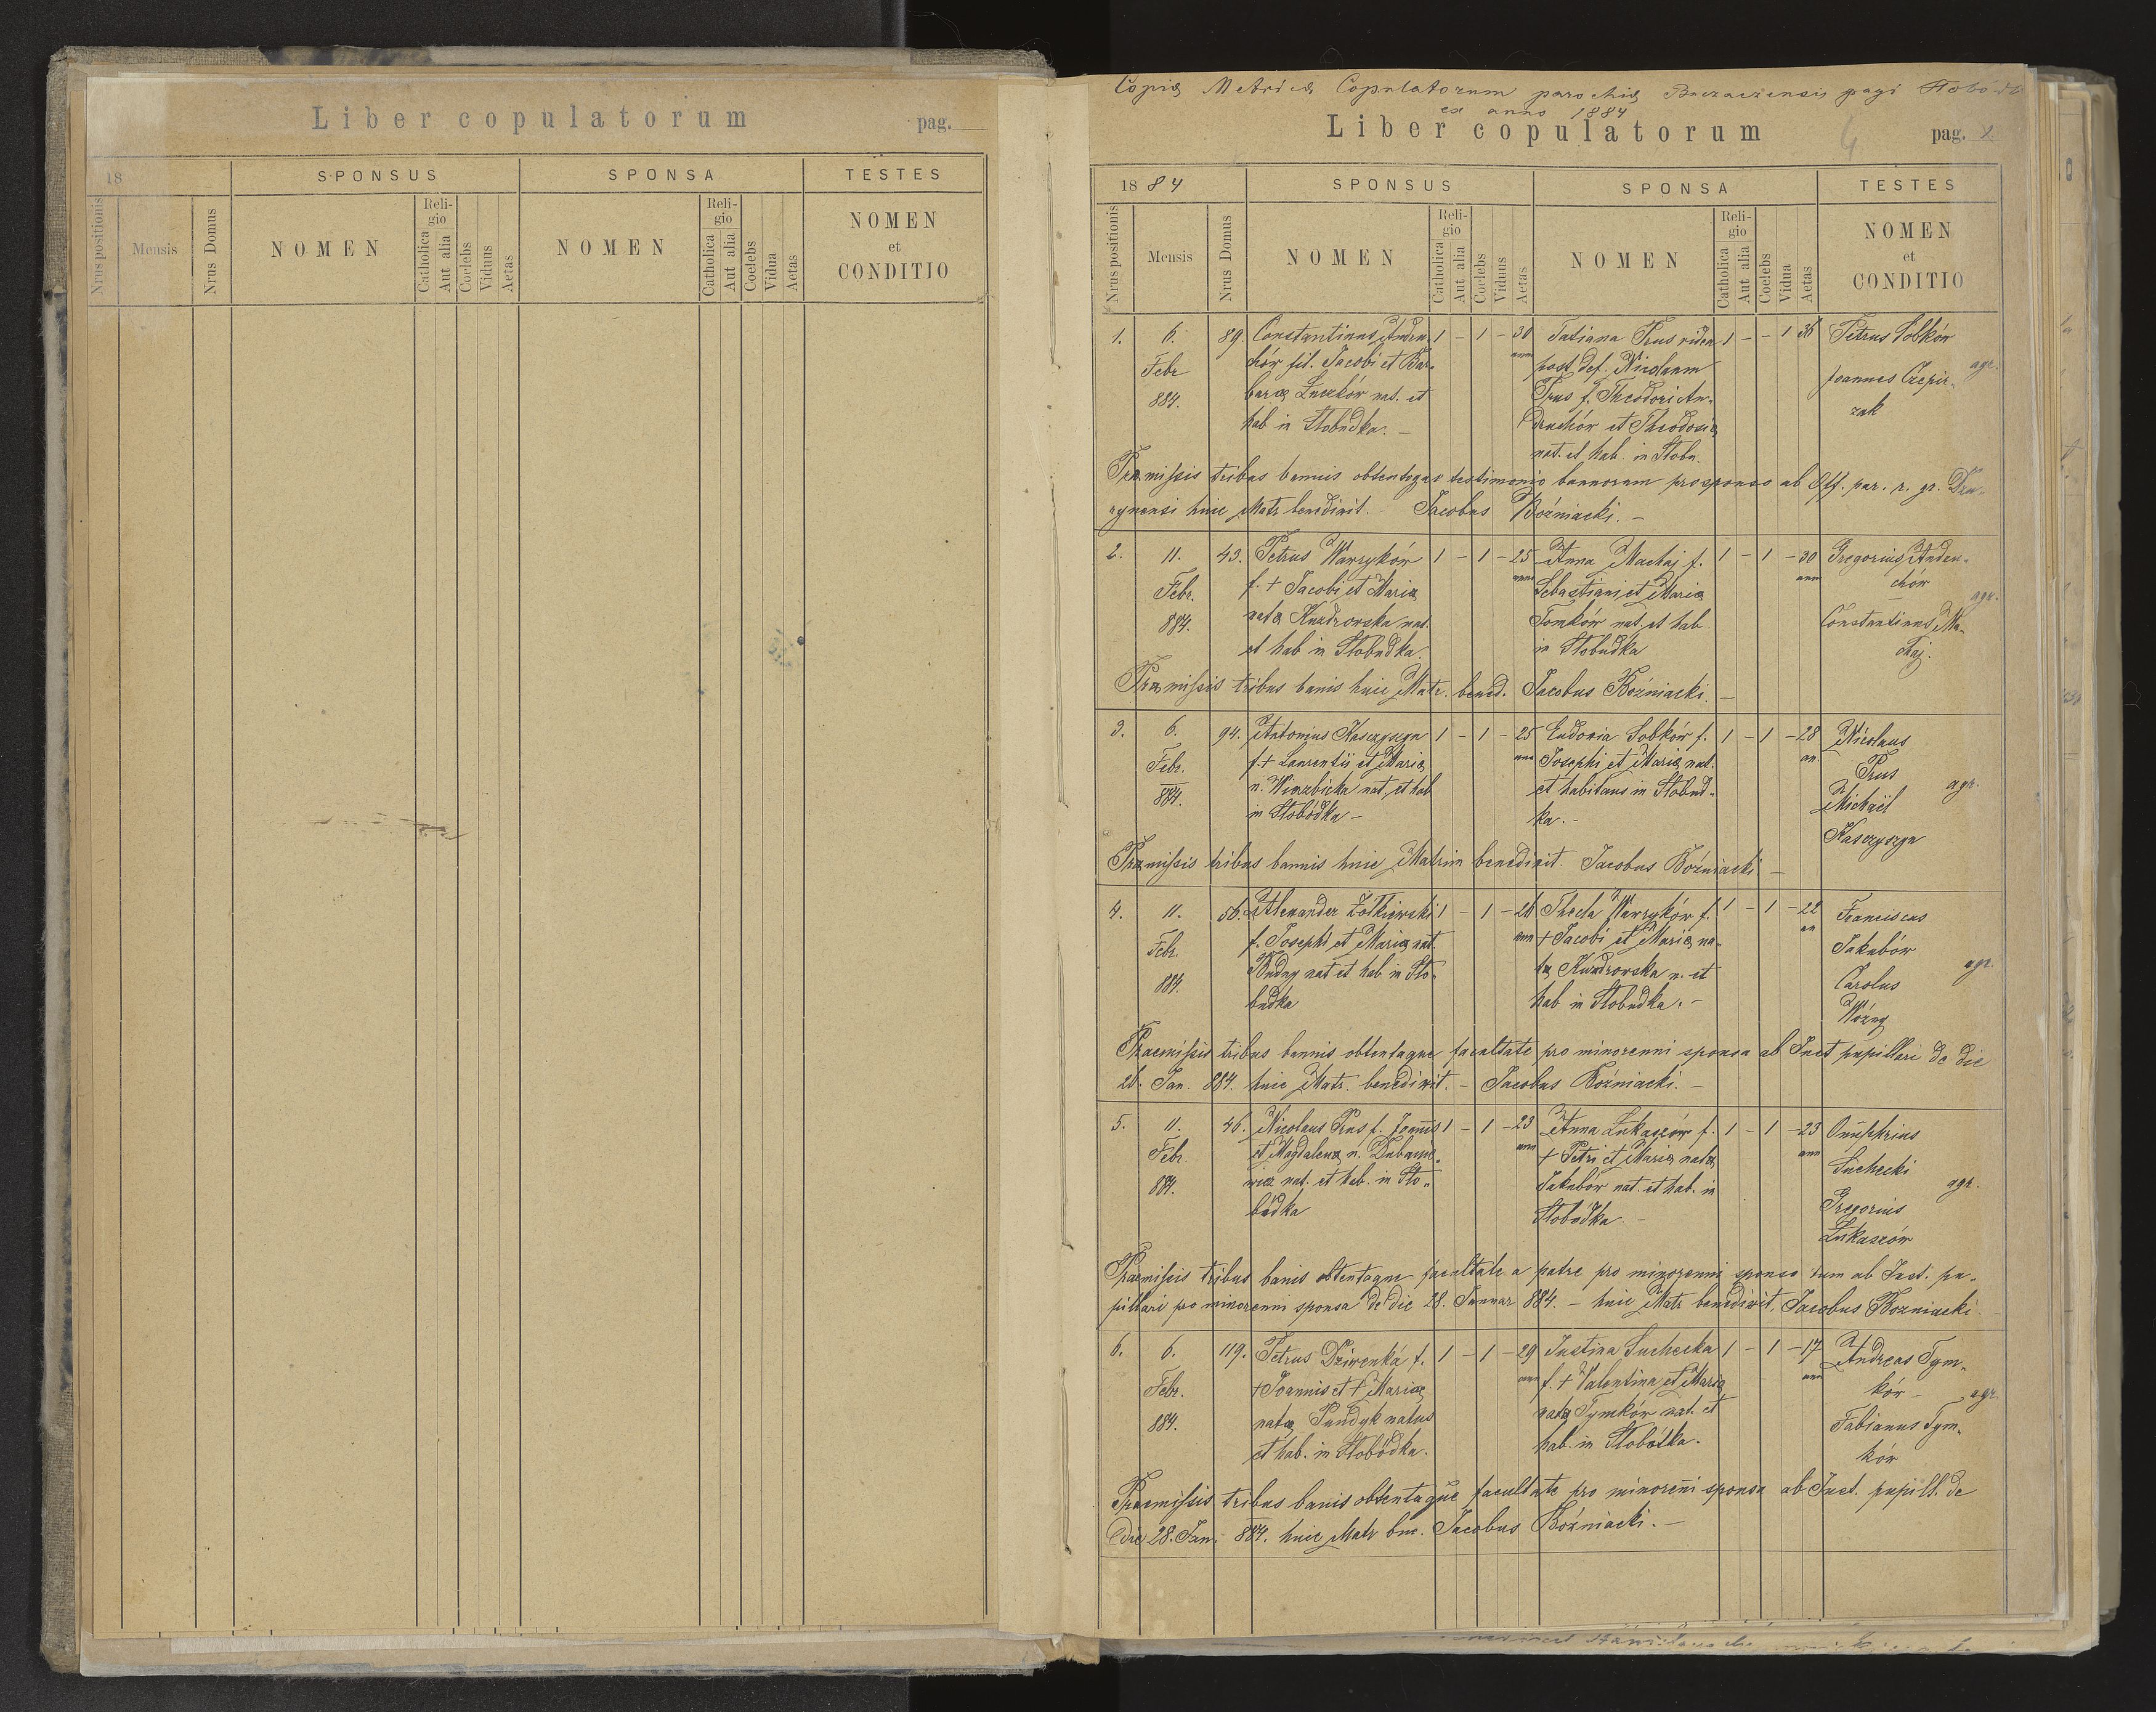 Liber copulatorum pag.
18 SPONSUS SPONSA TESTES
Nrus positionis Mensis Nrus Domus NOMEN Religio Catholica Aut alia Coelebs Viduus Aetas NOMEN Religio Catholica Aut alia Coelebs Vidua Aetas NOMEN et CONDITIO
Copia Metrica Copulatorum parochia Buczaczensis pagi
ex anno 1884
Liber copulatorum pag.
4
1884 SPONSUS SPONSA TESTES
Nrus positionis Mensis Nrus Domus NOMEN Religio Catholica Aut alia Coelebs Viduus Aetas NOMEN Religio Catholica Aut alia Coelebs Vidua Aetas NOMEN et CONDITIO
1. 6. Febr 884. 89.
Constantinus Andru-
chów fil. Jacobi et Bar-
barae Luczków nat. et
hab in Słobudka. –
1 – 1 – 30 ann
Tatiana Prus vidua
post def. Nicolaum
Prus f. Theodori An-
druchów et Theodosia
nat. et hab. in Słobu.
1 – – 1 36
Petrus Sobków
Joannes
zak
agr.
Praemissis tribus bannis obtentoque testimonio bannorum pro sponso ab Off. par. r. gr.
huic Matr benedixit. – Jacobus Woźniacki. –
2. 11. Febr. 884. 43.
Petrus Wawryków
f. + Jacobi et Maria
nata Kuzdrowska nat.
et hab in Słobudka.
1 – 1 – 25 ann
Anna Machaj f.
Sebastiani et Maria
Tomków nat. et hab.
in Słobudka
1 – 1 – 30 ann
Gregorius Andru-
chów
Constantinus Ma-
agr.
Praemissis tribus banis huic Matr. bened. Jacobus Woźniacki. –
3. 6. Febr. 884. 94.
Antonius Kasczyszyn
f. + Laurentii et Maria
n. Wierzbicka nat. et hab
in Słobódka –
1 – 1 – 25 ann
Eudoxia Sobków f.
Josephi et Maria nat.
et habitans in Słobud-
ka. –
1 – 1 – 28 an.
Nicolaus
Prus
Michaël
Kasczyszyn
agr.
Praemissis tribus bannis huic Matrim benedixit. Jacobus Woźniacki –
4. 11. Febr. 884. 56.
Alexander Żółkiewski
f. Josephi et Maria nat.
Budny nat et hab. in Sło-
budka
1 – 1 – 26 ann
Thecla Wawryków f.
+ Jacobi et Maria na-
ta Kuzdrowska n. et
hab in Słobudka. –
1 – 1 – 22 an
Franciscus
Jakubów
Carolus
Woźny
agr.
Praemissis tribus bannis obtentaque facultate pro minorenni sponsa ab Inst pupillari de die
26. Jan. 884. huic Matr. benedixit. – Jacobus Woźniacki. –
5. 11. Febr. 884. 46.
Nicolaus Prus f. Joannis
et Magdalena n.
wicz nat. et hab. in Sło-
bódka
1 – 1 – 23 ann
Anna Łukaszów f.
+ Petri et Maria nata
Jakubów nat. et hab. in
Słobudka –
1 – 1 – 23 ann
Onufrius
Suchecki
Gregorius
Łukaszów
agr.
Praemissis tribus banis obtentaque facultate a patre pro minorenni sponso tum ab Inst. pu-
pillari pro minorenni sponsa de die 28. Januar 884. – huic Matr benedixit. Jacobus Woźniacki
6. 6. Febr. 884. 119.
Petrus Dziwenka f.
+ Joannis et + Mariae
nata Pundyk natus
et hab. in Słobódka.
1 – 1 – 29 ann
Justina Suchecka
f. + Valentina et Maria
nata Tymków nat. et
hab. in Słobódka.
1 – 1 – 17 ann
Andreas Tym-
ków –
Fabianus Tym-
ków
agr.
Praemissis tribus banis obtentaque facultate pro minoreni sponsa ab Inst. pupill. de
die 28. Jan. 884. huic Matr bnc. Jacobus Woźniacki. –